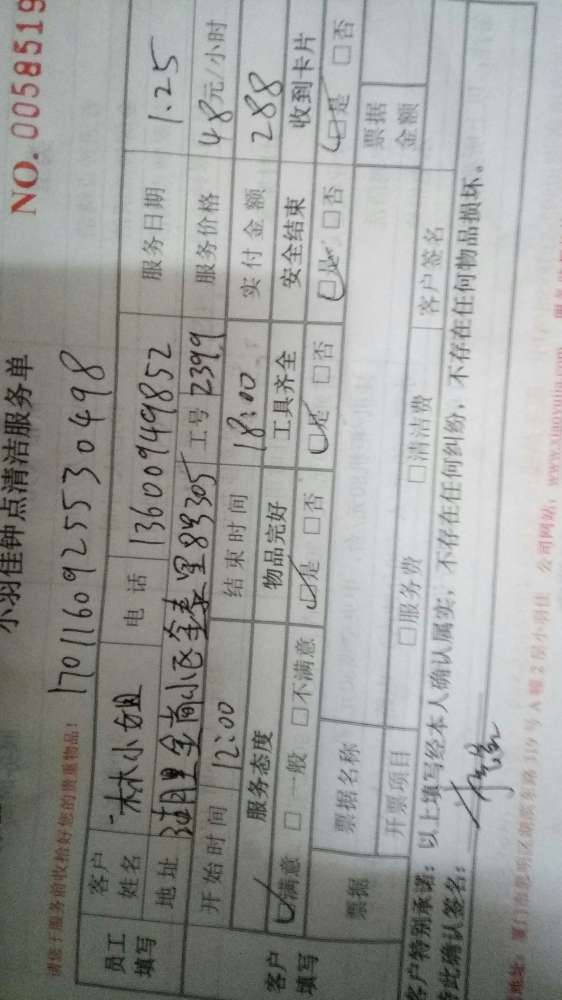 小羽佳钟点清洁服务单
NO. 0058519
请您于服务前收拾好您的贵重物品！ 17011609255530498
员工填写 客户姓名 林小姐 电话 13600949852 服务日期 1.25
地址 金尚小区 里83305 工号 2399 服务价格 48元/小时
开始时间 12:00 结束时间 18:00 实付金额 288
客户填写 服务态度 物品完好 工具齐全 安全结束 收到卡片
☑满意 □一般 □不满意 ☑是 □否 ☑是 □否 ☑是 □否 ☑是 □否
票据 票据名称 票据金额
开票项目 □服务费 □清洁费 客户签名
客户特别承诺：以上填写经本人确认属实，不存在任何纠纷，不存在任何物品损坏。
在此确认签名：
地址：厦门市思明区湖滨东路319号A幢2层小羽佳 公司网站：www.xiaoyujia.com